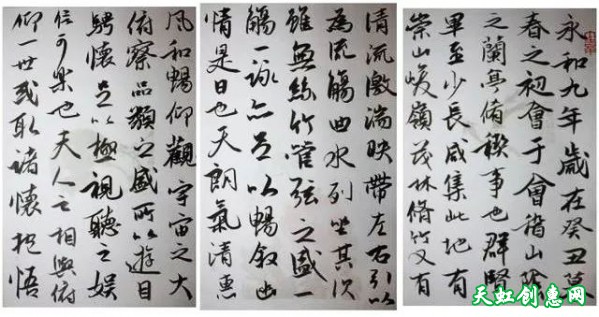 永和九年歲在癸丑暮
春之初會于會稽山陰
之蘭亭脩禊事也群賢
畢至少長咸集此地有
崇山峻嶺茂林脩竹又有
清流激湍映帶左右引以
為流觴曲水列坐其次
雖無絲竹管弦之盛一
觴一詠亦足以暢敘幽
情是日也天朗氣清惠
風和暢仰觀宇宙之大
俯察品類之盛所以遊目
騁懷足以極視聽之娛
信可樂也夫人之相與俯
仰一世或取諸懷抱悟
天虹创惠网